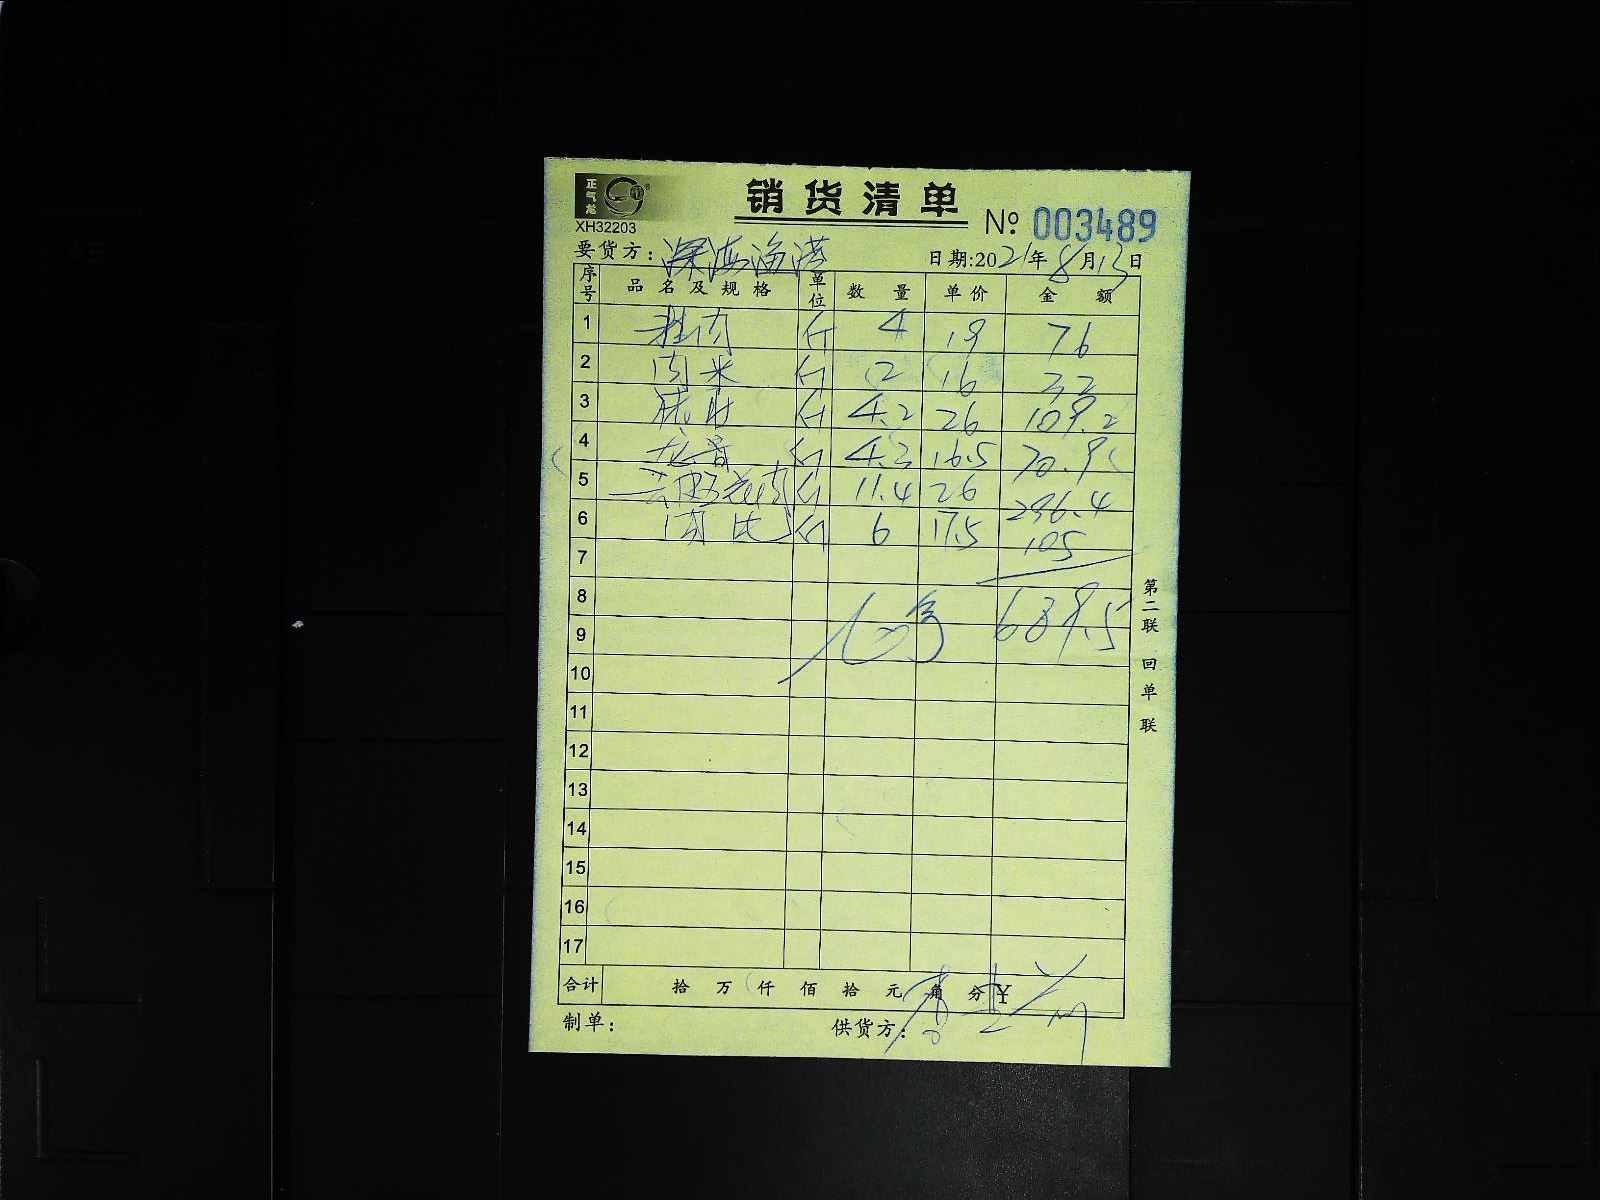 正气龙
销货清单
XH32203
№ 003489
要货方：深海渔港 日期:2021年8月13日
序号 品名及规格 单位 数量 单价 金额
1 斤 4 19 76
2 肉米 斤 2 16 32
3 斤 4.2 26 109.2
4 龙骨 斤 4.3 16.5 70.9
5 斤 11.4 26 296.4
6 斤 6 17.5 105
7
8 689.5
9
10
11
12
13
14
15
16
17
合计 拾 万 仟 佰 拾 元 角 分 ¥
制单： 供货方：
第二联 回单联